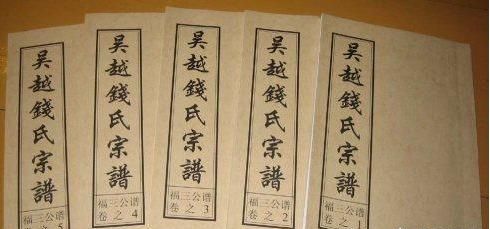 吴越錢氏宗譜
福三公谱
卷之1
吴越錢氏宗譜
福三公谱
卷之2
吴越錢氏宗譜
福三公谱
卷之3
吴越錢氏宗譜
福三公谱
卷之4
吴越錢氏宗譜
福三公谱
卷之5